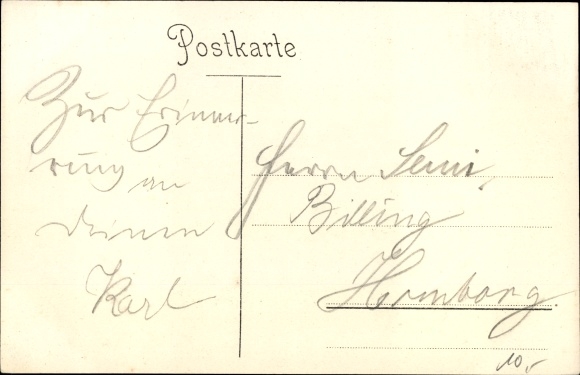 Postkarte
Zur Erinne-
rung an
deinen
Karl
Herrn Semi
Billing
Homburg.
10,-